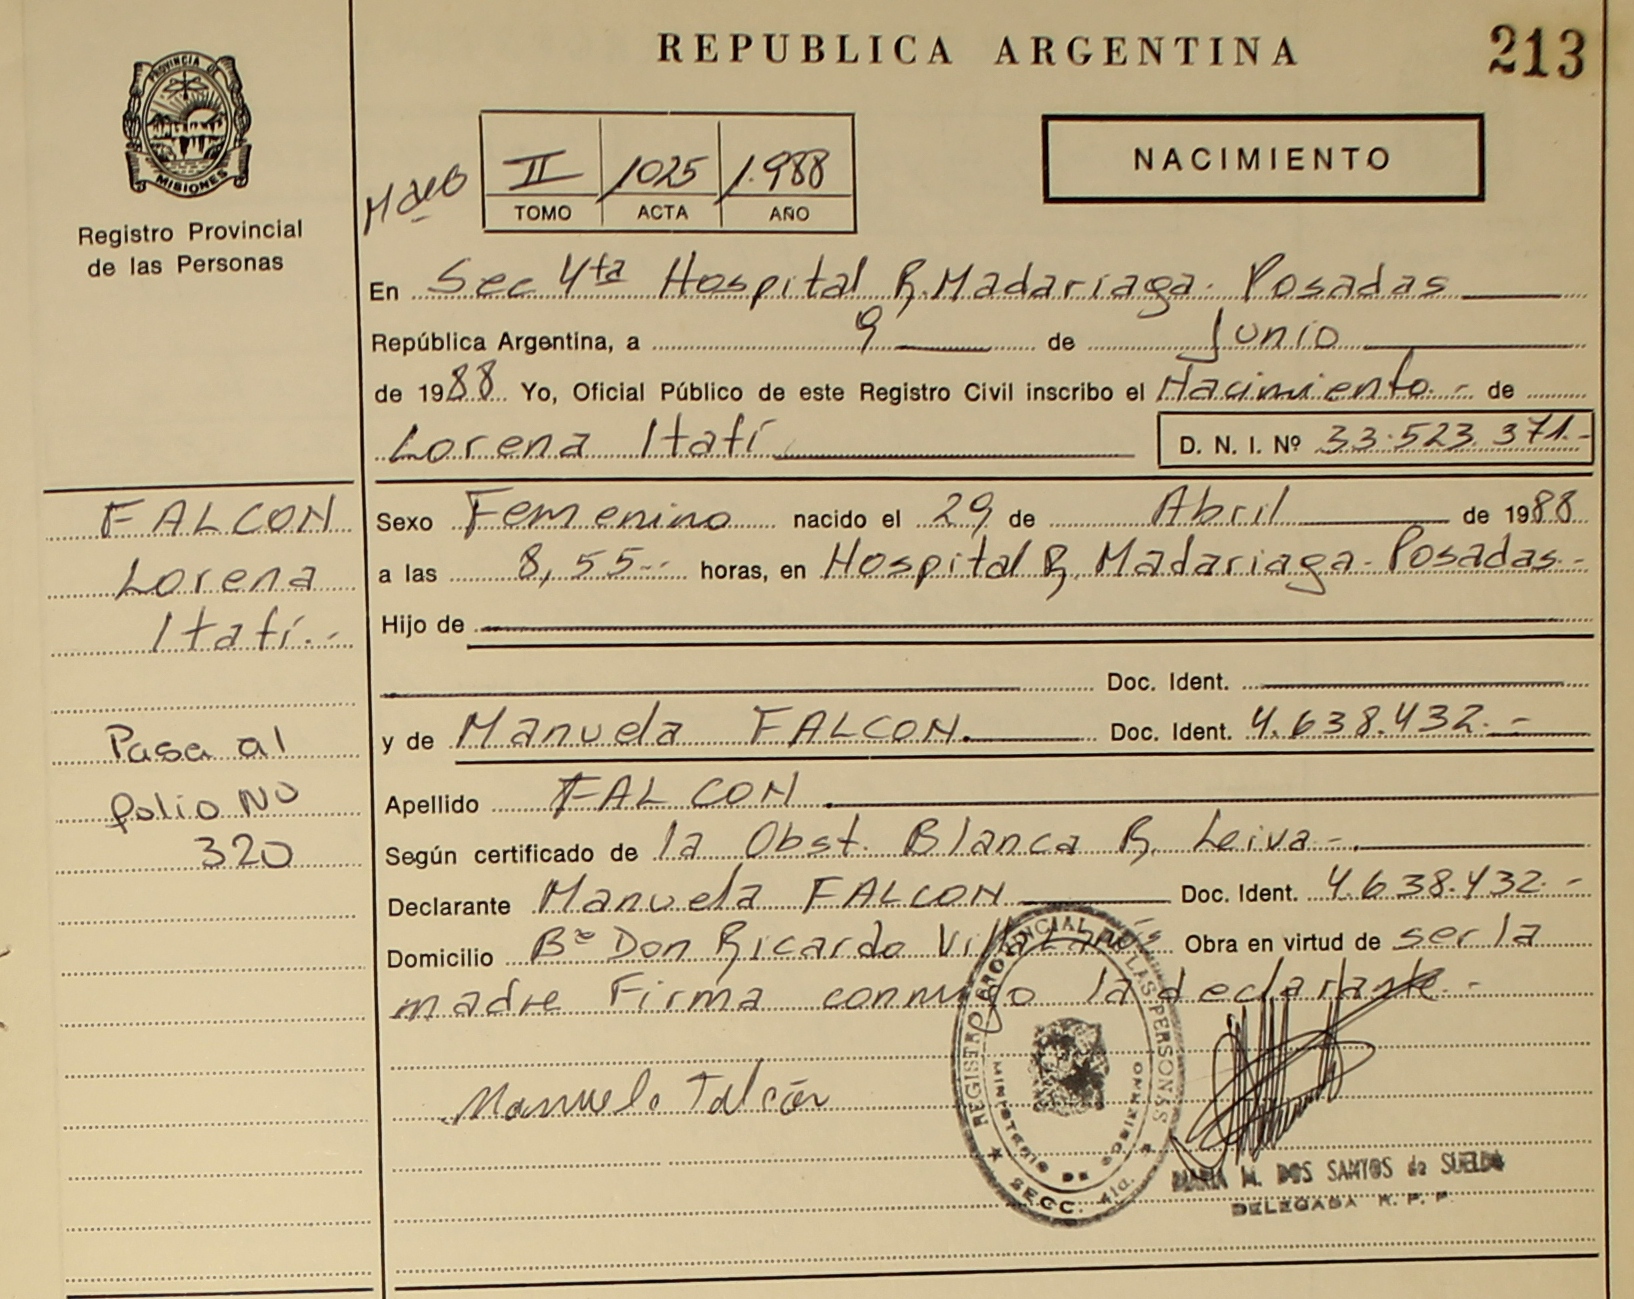 REPUBLICA ARGENTINA
213
PROVINCIA DE
MISIONES
Registro Provincial
de las Personas
II 1025 1.988
TOMO ACTA AÑO
NACIMIENTO
En Sec 4ta Hospital R. Madariaga - Posadas
República Argentina, a 9 de Junio
de 1988 Yo, Oficial Público de este Registro Civil inscribo el Nacimiento.- de
Lorena Itatí D. N. I. Nº 33.523.371.-
FALCON
Lorena
Itatí.-
Pasa al
folio No
320
Sexo Femenino nacido el 29 de Abril de 1988
a las 8,55-- horas, en Hospital R. Madariaga - Posadas.-
Hijo de
Doc. Ident.
y de Manuela FALCON. Doc. Ident. 4.638.432.-
Apellido FALCON
Según certificado de la Obst. Blanca R. Leiva-.
Declarante Manuela FALCON Doc. Ident. 4.638.432.-
Domicilio Bº Don Ricardo Villa Lanús Obra en virtud de ser la
madre Firma conmigo la declarante.-
Manuela Falcón
REGISTRO PROVINCIAL DE LAS PERSONAS
MINISTERIO DE GOBIERNO
SECC. 4ta.
MARIA M. DOS SANTOS de SUELDO
DELEGADA R. P. P.